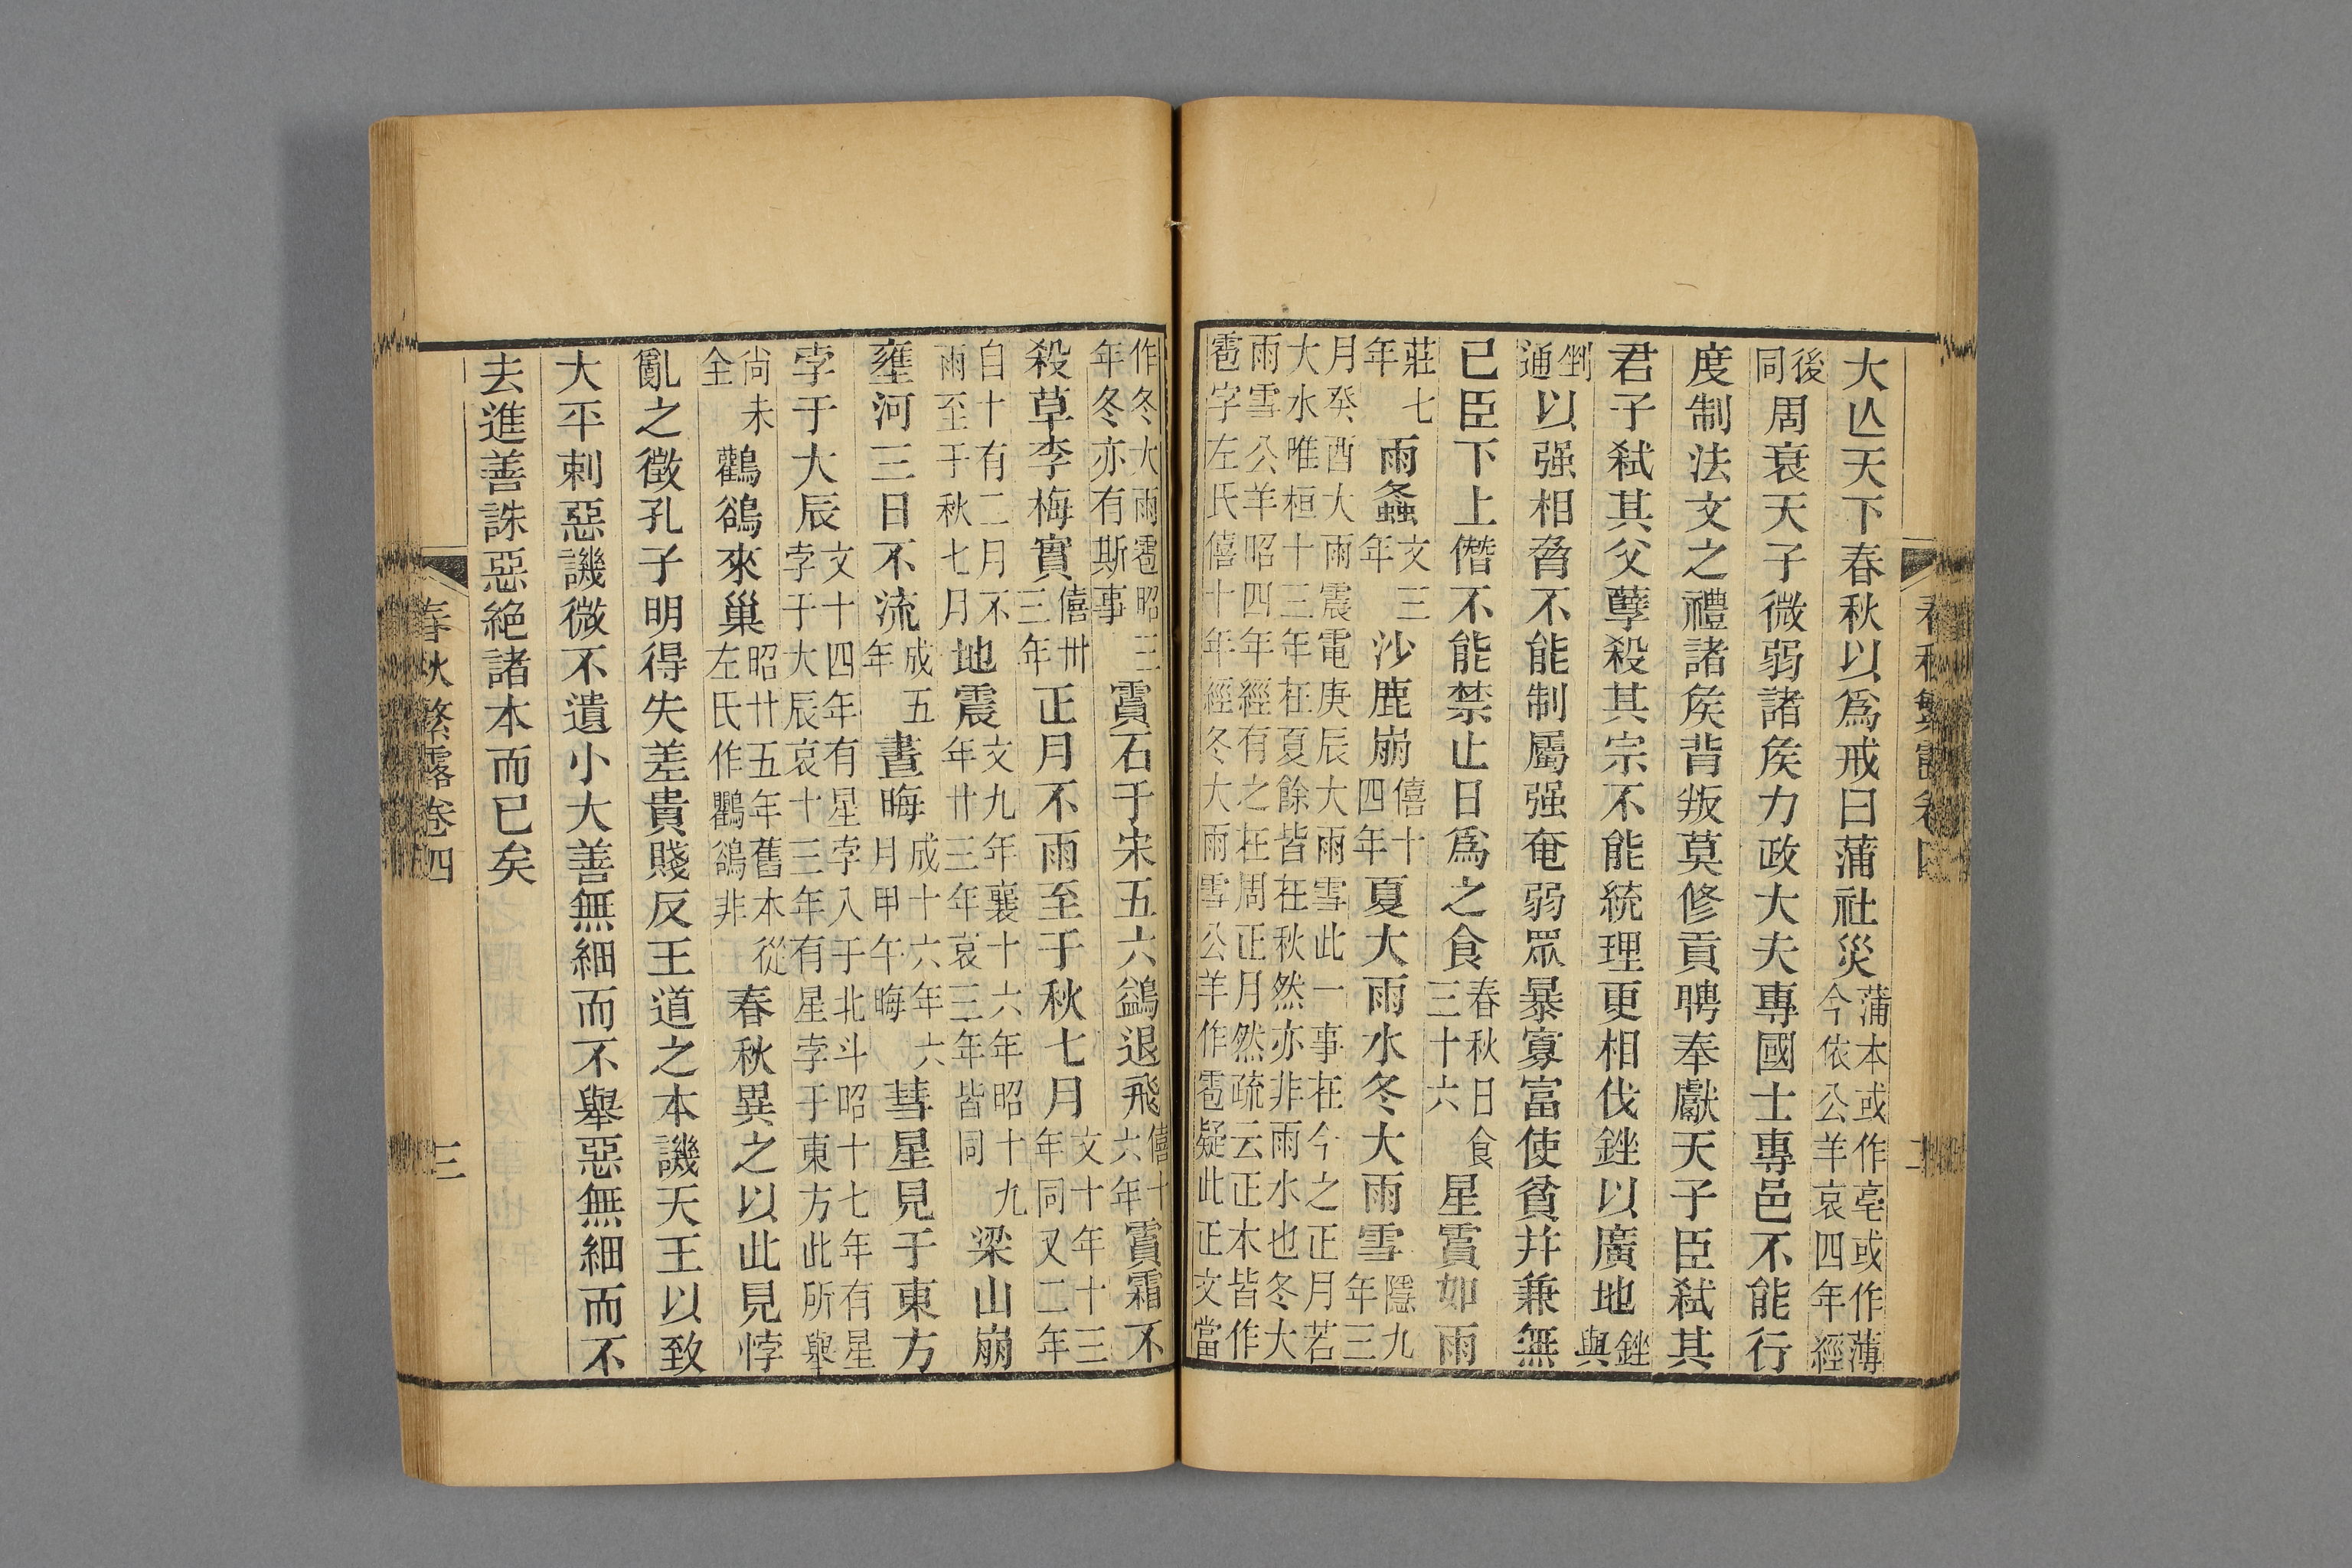 春秋繁露卷四
二
大亾天下春秋以爲戒曰蒲社災蒲本或作亳或作薄今依公羊哀四年經
後同周衰天子微弱諸矦力政大夫專國士專邑不能行
度制法文之禮諸矦背叛莫修貢聘奉獻天子臣弑其
君子弑其父孽殺其宗不能統理更相伐銼以廣地銼與
剉通以强相脅不能制屬强奄弱眾暴寡富使貧并兼無
已臣下上僭不能禁止日爲之食春秋日食三十六星霣如雨
莊七年雨螽文三年沙鹿崩僖十四年夏大雨水冬大雨雪隱九年三
月癸酉大雨震電庚辰大雨雪此一事在今之正月若
大水唯桓十三年在夏餘皆在秋然亦非雨水也冬大
雨雪公羊昭四年經有之在周正月然疏云正本皆作
雹字左氏僖十年經冬大雨雪公羊作雹疑此正文當
作冬大雨雹昭三年冬亦有斯事霣石于宋五六鷁退飛僖十六年霣霜不
殺草李梅實僖卅三年正月不雨至于秋七月文十年十三年同又二年
自十有二月不雨至于秋七月地震文九年襄十六年昭十九年廿三年哀三年皆同梁山崩
壅河三日不流成五年晝晦成十六年六月甲午晦彗星見于東方
孛于大辰文十四年有星孛入于北斗昭十七年有星孛于大辰哀十三年有星孛于東方此所舉
尚未全鸛鵒來巢昭廿五年舊本從左氏作鸜鵒非春秋異之以此見悖
亂之徵孔子明得失差貴賤反王道之本譏天王以致
大平刺惡譏微不遺小大善無細而不舉惡無細而不
去進善誅惡絶諸本而已矣
春秋繁露卷四
三